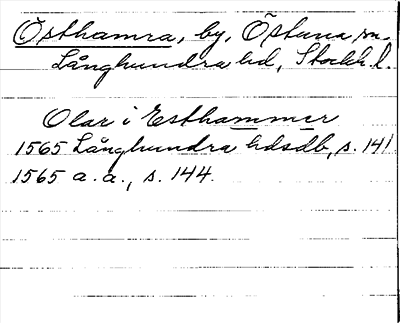 Östhamra, by, Östuna sn.
Långhundra hd, Stockh. l.
Olar i Esthammer
1565 Långhundra hdsdb, s. 141
1565 a. a., s. 144.